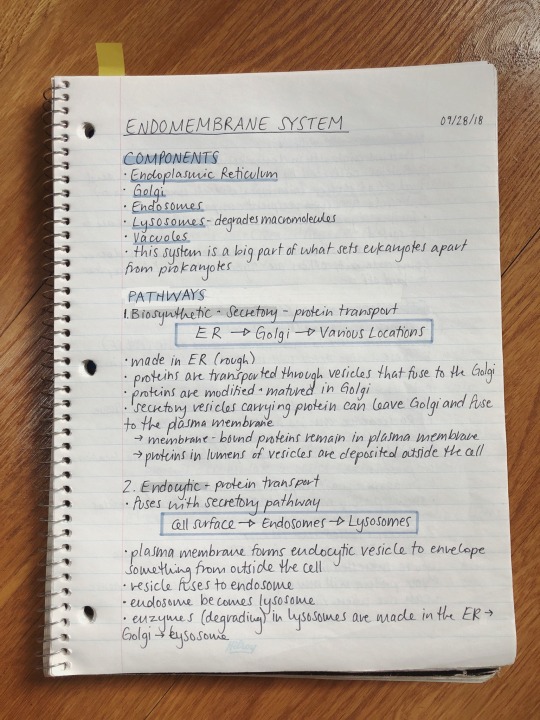 ENDOMEMBRANE SYSTEM 09/28/18
COMPONENTS
· Endoplasmic Reticulum
· Golgi
· Endosomes
· Lysosomes - degrades macromolecules
· Vacuoles
· this system is a big part of what sets eukaryotes apart
from prokaryotes
PATHWAYS
1. Biosynthetic - Secretory - protein transport
ER → Golgi → Various Locations
· made in ER (rough)
· proteins are transported through vesicles that fuse to the Golgi
· proteins are modified + matured in Golgi
· secretory vesicles carrying protein can leave Golgi and fuse
to the plasma membrane
→ membrane-bound proteins remain in plasma membrane
→ proteins in lumens of vesicles are deposited outside the cell
2. Endocytic - protein transport
· fuses with secretory pathway
Cell surface → Endosomes → Lysosomes
· plasma membrane forms endocytic vesicle to envelope
something from outside the cell
· vesicle fuses to endosome
· endosome becomes lysosome
· enzymes (degrading) in lysosomes are made in the ER →
Golgi → Lysosome